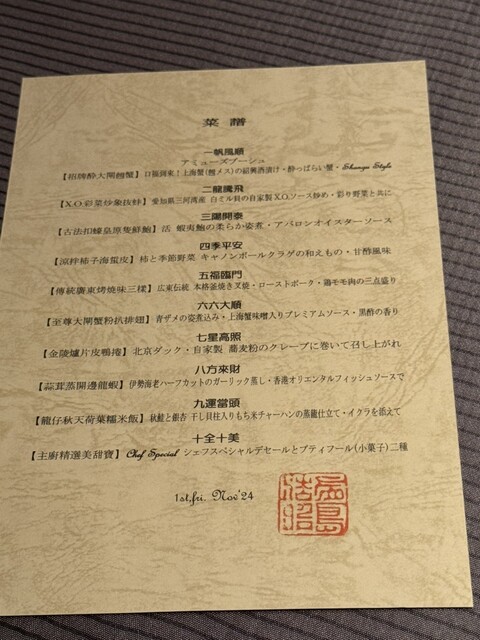 菜譜
一帆風順
アミューズブーシュ
【招牌醉大閘膏蟹】口福到来!上海蟹(膏メス)の紹興酒漬け・酔っぱらい蟹・Shangu Style
二龍騰飛
【X.O.彩菜炒象抜蚌】愛知県三河湾産 白ミル貝の自家製X.O.ソース炒め・彩り野菜と共に
三陽開泰
【古法扣蠔皇原隻鮮鮑】活 蝦夷鮑の柔らか姿煮・アバロンオイスターソース
四季平安
【涼粋柿子海蜇皮】柿と季節野菜 キャノンボールクラゲの和えもの・甘酢風味
五福臨門
【傳統廣東烤燒味三樣】広東伝統 本格釜焼き叉焼・ローストポーク・鶏モモ肉の三点盛り
六六大順
【至尊大閘蟹粉扒排翅】青ザメの姿煮込み・上海蟹味噌入りプレミアムソース・黒酢の香り
七星高照
【金陵爐片皮鴨捲】北京ダック・自家製 蕎麦粉のクレープに巻いて召し上がれ
八方來財
【蒜茸蒸開邊龍蝦】伊勢海老ハーフカットのガーリック蒸し・香港オリエンタルフィッシュソースで
九運當頭
【龍仔秋天荷葉糯米飯】秋鮭と銀杏 干し貝柱入りもち米チャーハンの蒸籠仕立て・イクラを添えて
十全十美
【主廚精選美甜寶】Chef Special シェフスペシャルデセールとプティフール(小菓子)二種
1st,fri. Nov'24